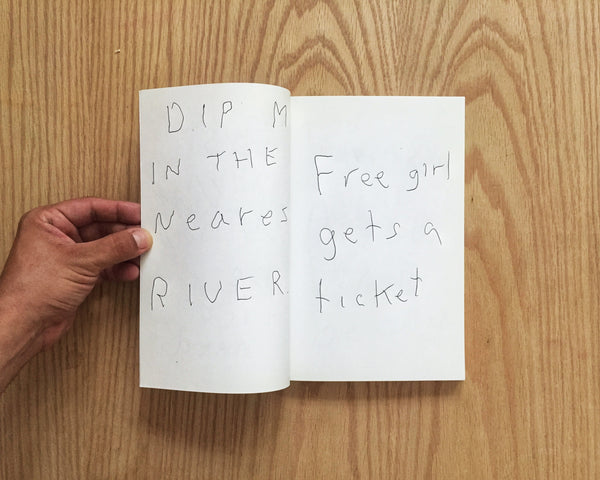 DIP M
IN THE
Neares
RIVER.
Free girl
gets a
ticket